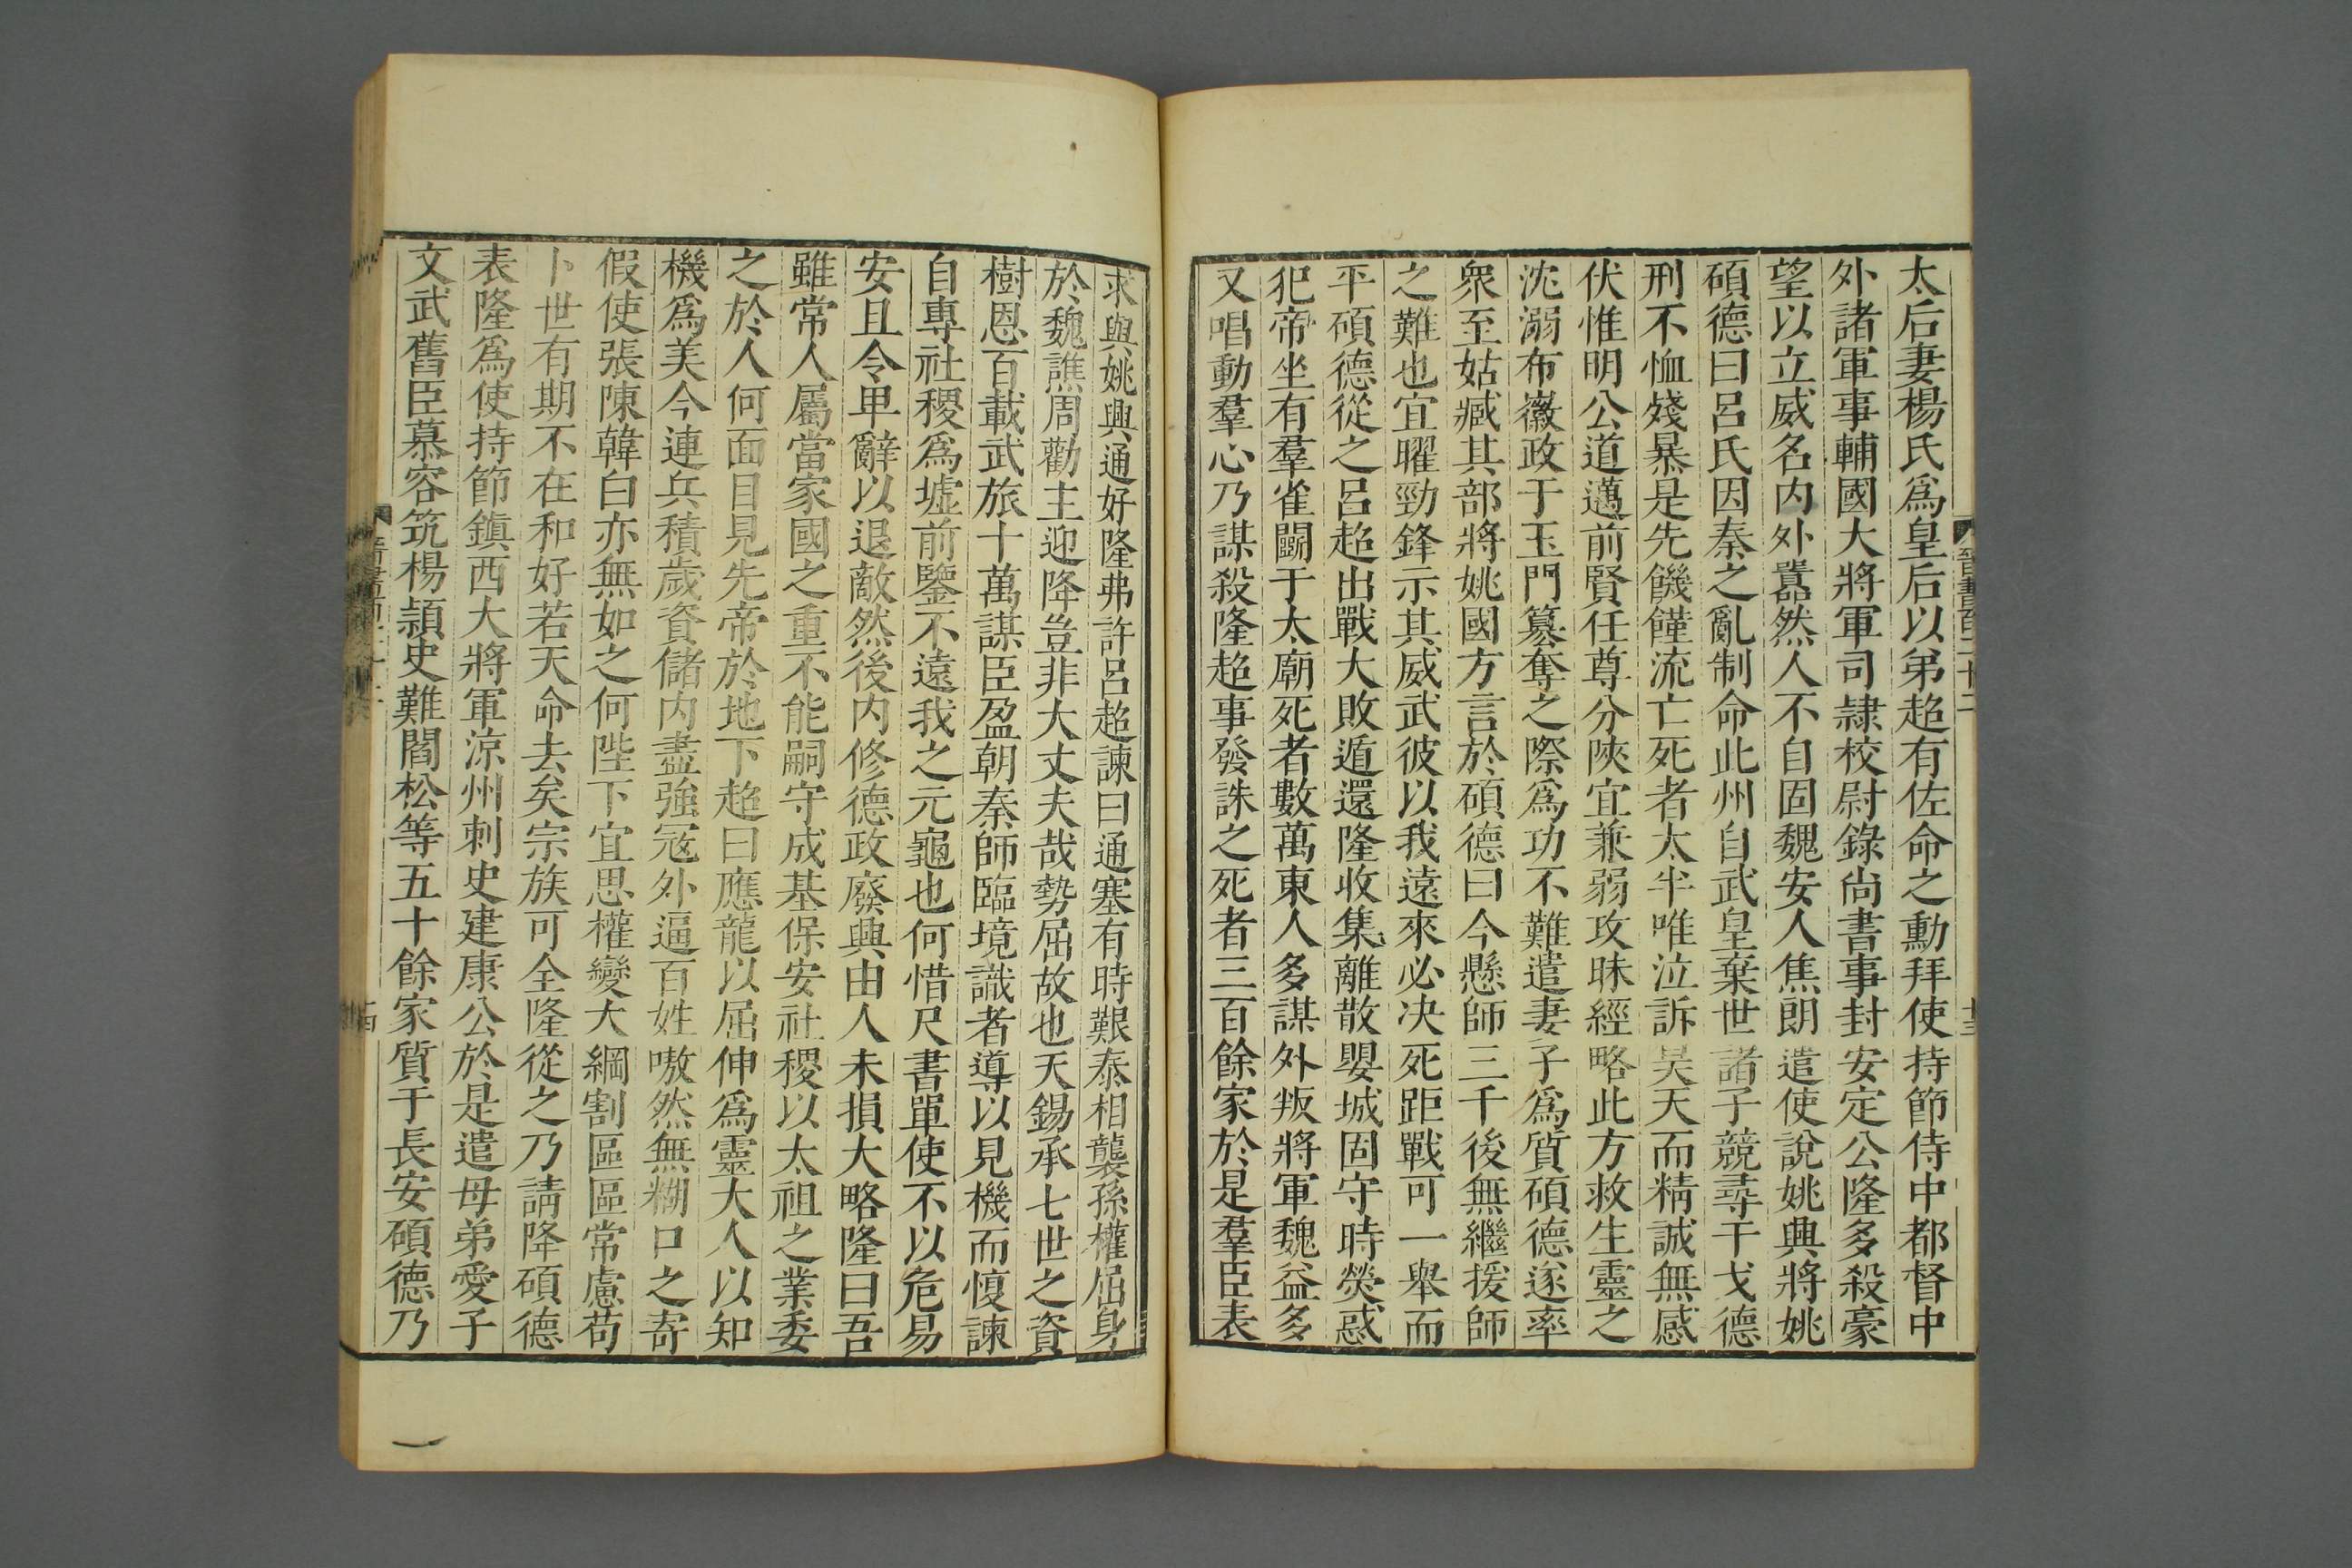 太后妻楊氏爲皇后以弟超有佐命之勳拜使持節侍中都督中
外諸軍事輔國大將軍司隷校尉錄尚書事封安定公隆多殺豪
望以立威名内外囂然人不自固魏安人焦朗遣使說姚興將姚
碩德曰呂氏因秦之亂制命此州自武皇棄世諸子競尋干戈德
刑不恤殘暴是先饑饉流亡死者太半唯泣訴昊天而精誠無感
伏惟明公道邁前賢任尊分陝宜兼弱攻昧經略此方救生靈之
沈溺布徽政于玉門纂奪之際爲功不難遣妻子爲質碩德遂率
衆至姑臧其部將姚國方言於碩德曰今懸師三千後無繼援師
之難也宜曜勁鋒示其威武彼以我遠來必决死距戰可一舉而
平碩德從之呂超出戰大敗遁還隆收集離散嬰城固守時熒惑
犯帝坐有羣雀鬭于太廟死者數萬東人多謀外叛將軍魏益多
又唱動羣心乃謀殺隆超事發誅之死者三百餘家於是羣臣表
晉書百二十二
十三
求與姚興通好隆弗許呂超諫曰通塞有時艱泰相襲孫權屈身
於魏譙周勸主迎降豈非大丈夫哉勢屈故也天錫承七世之資
樹恩百載武旅十萬謀臣盈朝秦師臨境識者導以見機而愎諫
自專社稷爲墟前鑒不遠我之元龜也何惜尺書單使不以危易
安且令卑辭以退敵然後内修德政廢興由人未損大略隆曰吾
雖常人屬當家國之重不能嗣守成基保安社稷以太祖之業委
之於人何面目見先帝於地下超曰應龍以屈伸爲靈大人以知
機爲美今連兵積歲資儲内盡強寇外逼百姓嗷然無糊口之寄
假使張陳韓白亦無如之何陛下宜思權變大綱割區區常慮苟
卜世有期不在和好若天命去矣宗族可全隆從之乃請降碩德
表隆爲使持節鎭西大將軍涼州刺史建康公於是遣母弟愛子
文武舊臣慕容筑楊頴史難閻松等五十餘家質于長安碩德乃